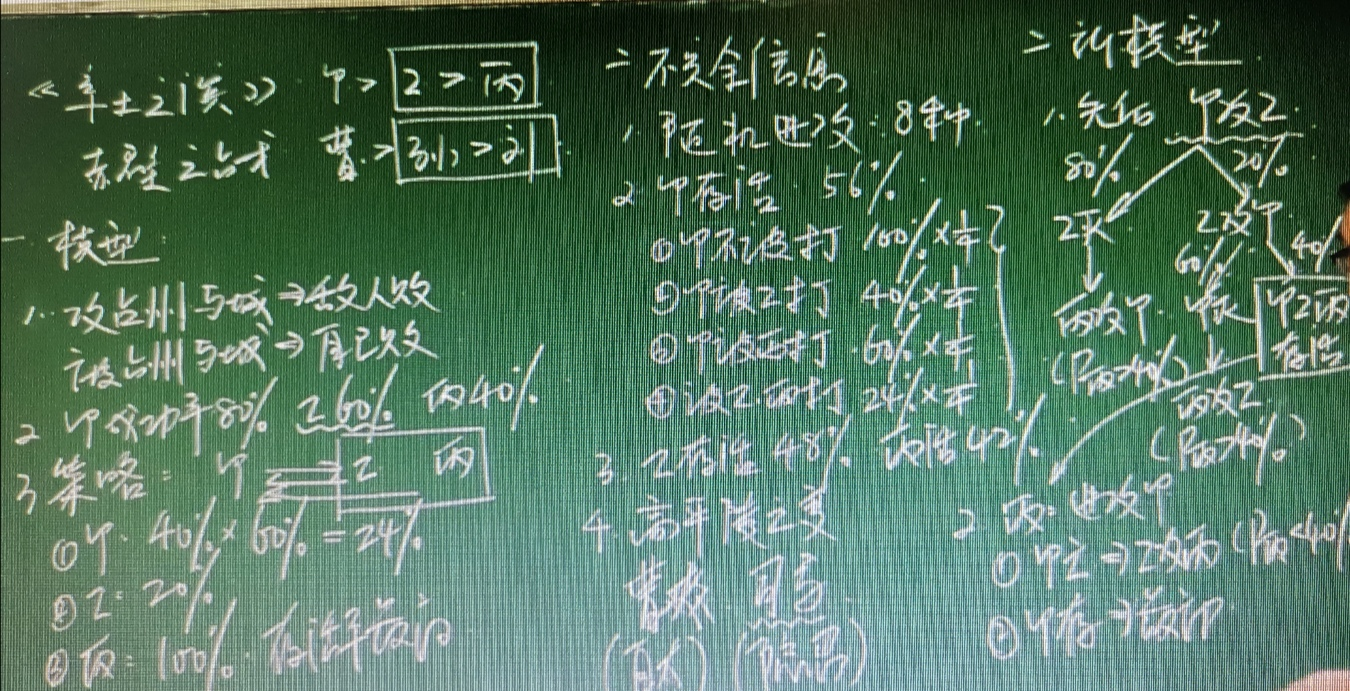 《率土之滨》 甲> 乙>丙
赤壁之战 曹>孙>刘
一 模型:
1. 攻占州与城⇒敌人败
被占州与城⇒自己败
2 甲成功率80% 乙60% 丙40%
3 策略: 甲 乙 丙
①甲: 40%×60%=24%
②乙: 20%
③丙: 100% 存活率最高
二 不完全信息
1. 随机进攻: 8种
2 甲存活 56%
①甲不被打 100%×1/4
②甲被乙打 40%×1/4
③甲被丙打 60%×1/4
④被乙丙打 24%×1/4
3. 乙存活48% 丙活42%
4. 高平陵之变
曹爽 司马
(自大) (隐忍)
二 新模型
1. 先后 甲攻乙
80% 20%
乙灭 乙攻甲
60% 40%
丙攻甲 甲灭 甲乙丙
存活
(P丙>40%) 丙攻乙
(P丙>40%)
2 丙: 进攻甲
①甲亡⇒乙攻丙(P丙<40%
②甲存⇒最初